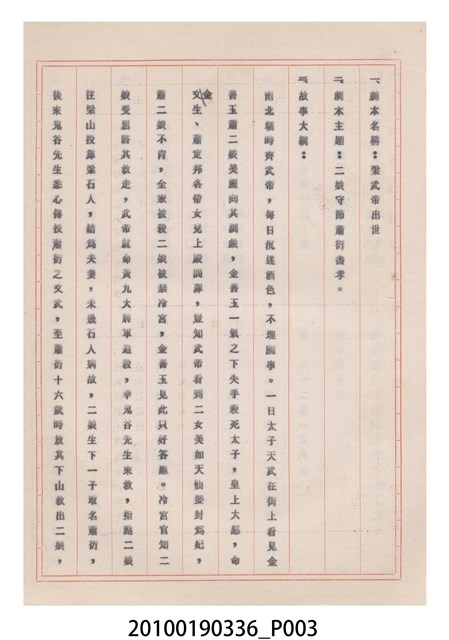 一、劇本名稱：梁武帝出世
二、劇本主題：二娘守節蕭衍盡孝。
三、故事大綱：
南北朝時齊武帝，每日沉迷酒色，不理國事。一日太子天武在街上看見金
善玉蕭二娘美麗向其調戲，金善玉一氣之下失手殺死太子，皇上大怒，命
金文生、蕭定邦各帶女兒上殿面罪，豈知武帝看到二女美如天仙要封為妃，
蕭二娘不肯，全家被殺二娘被禁冷宮，金善玉見此只好答應。冷宮官知二
娘受屈將其救走，武帝就命黃九大將軍追殺，幸鬼谷先生來救，指點二娘
往梁山投靠梁石人，結為夫妻，未幾石人病故，二娘生下一子取名蕭衍，
後來鬼谷先生悉心傳授蕭衍之文武，至蕭衍十六歲時放其下山救出二娘，
20100190336_P003